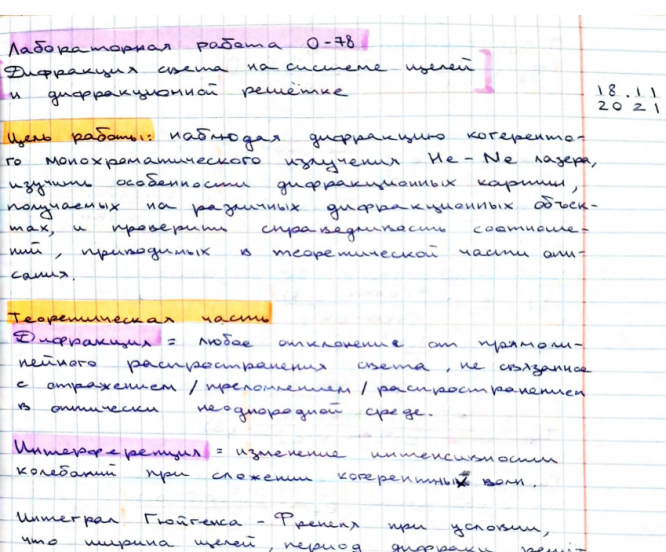 Лабораторная работа О-78
Дифракция света на системе щелей
и дифракционной решётке
18.11
2021
Цель работы: наблюдая дифракцию когерентно-
го монохроматического излучения He-Ne лазера,
изучить особенности дифракционных картин,
получаемых на различных дифракционных объек-
тах, и проверить справедливость соотноше-
ний, приводимых в теоретической части опи-
сания.
Теоретическая часть
Дифракция = любое отклонение от прямоли-
нейного распространения света, не связанное
с отражением / преломлением / распространением
в оптически неоднородной среде.
Интерференция = изменение интенсивности
колебаний при сложении когерентных волн.
Интеграл Гюйгенса - Френеля при условии,
что ширина щелей, период